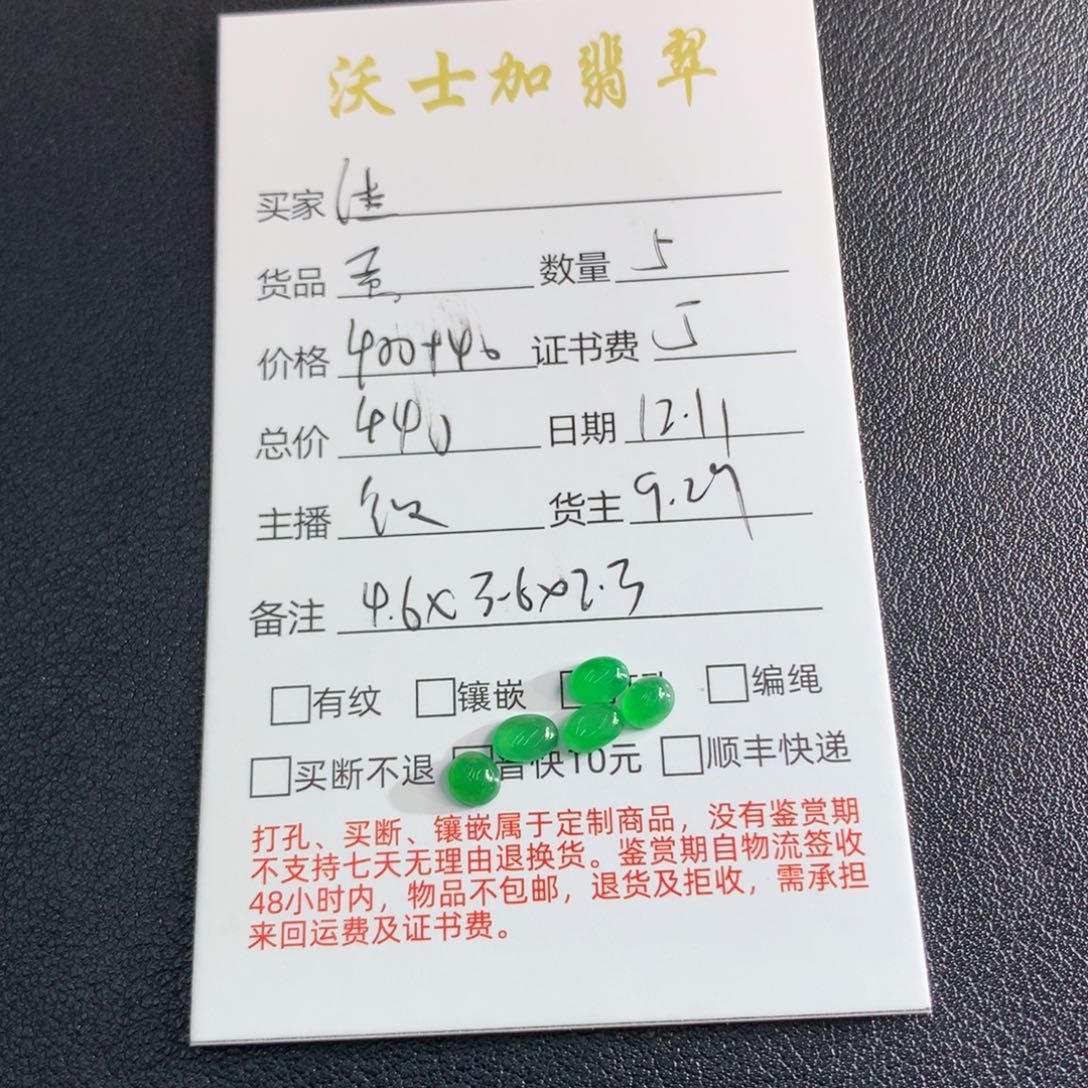 沃士加翡翠
买家
货品 蛋 数量 5
价格 400+40 证书费
总价 440 日期 12.11
主播 红 货主 9.27
备注 4.6×3.6×2.3
有纹 镶嵌 编绳
买断不退 普快10元 顺丰快递
打孔、买断、镶嵌属于定制商品，没有鉴赏期
不支持七天无理由退换货。鉴赏期自物流签收
48小时内，物品不包邮，退货及拒收，需承担
来回运费及证书费。